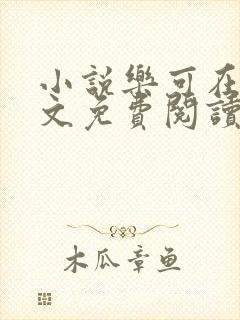 小説樂可在
文免費閱讀
木瓜章鱼